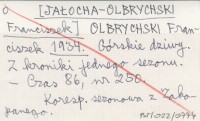 0 [JAŁOCHA-OLBRYCHSKI
Franciszek] OLBRYCHSKI Fran-
ciszek 1934. Górskie dziwy.
Z kroniki jednego sezonu.
- Czas 86, nr 250.
Koresp. sezonowa z Zako-
panego.